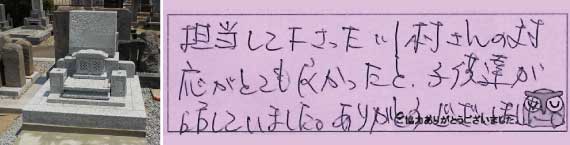 担当して下さった小村さんの対
応がとても良かったと、子供達が
話していました。ありがとうございました
ご協力ありがとうございました。